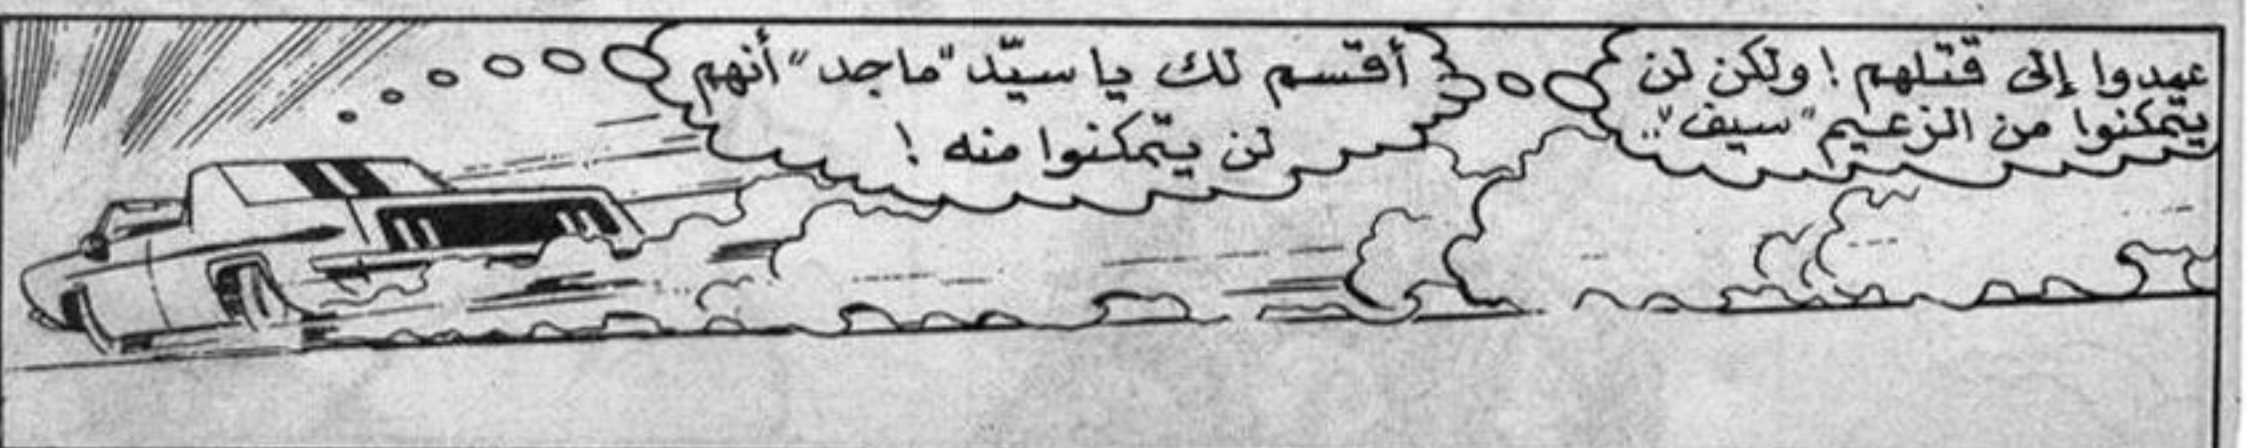 عمدوا إلى قتلهم ! ولكن لن
يتمكنوا من الزعيم "سيف"..
أقسم لك يا سيّد "ماجد" أنهم
لن يتمكنوا منه !